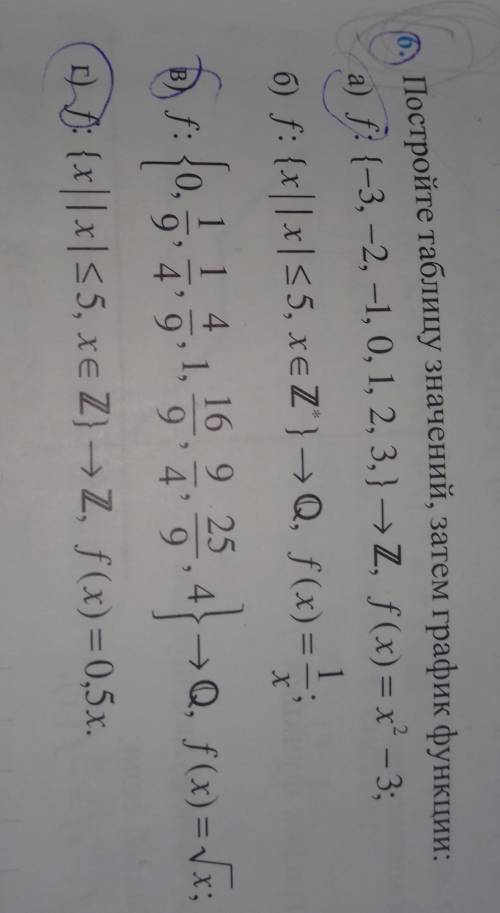 6. Постройте таблицу значений, затем график функции:
а) f: {−3, −2, −1, 0, 1, 2, 3,} → ℤ, f(x) = x² − 3;
б) f: {x | |x| ≤ 5, x ∈ ℤ*} → ℚ, f(x) = 1/x;
в) f: {0, 1/9, 1/4, 4/9, 1, 16/9, 9/4, 25/9, 4} → ℚ, f(x) = √x;
г) f: {x | |x| ≤ 5, x ∈ ℤ} → ℤ, f(x) = 0,5x.